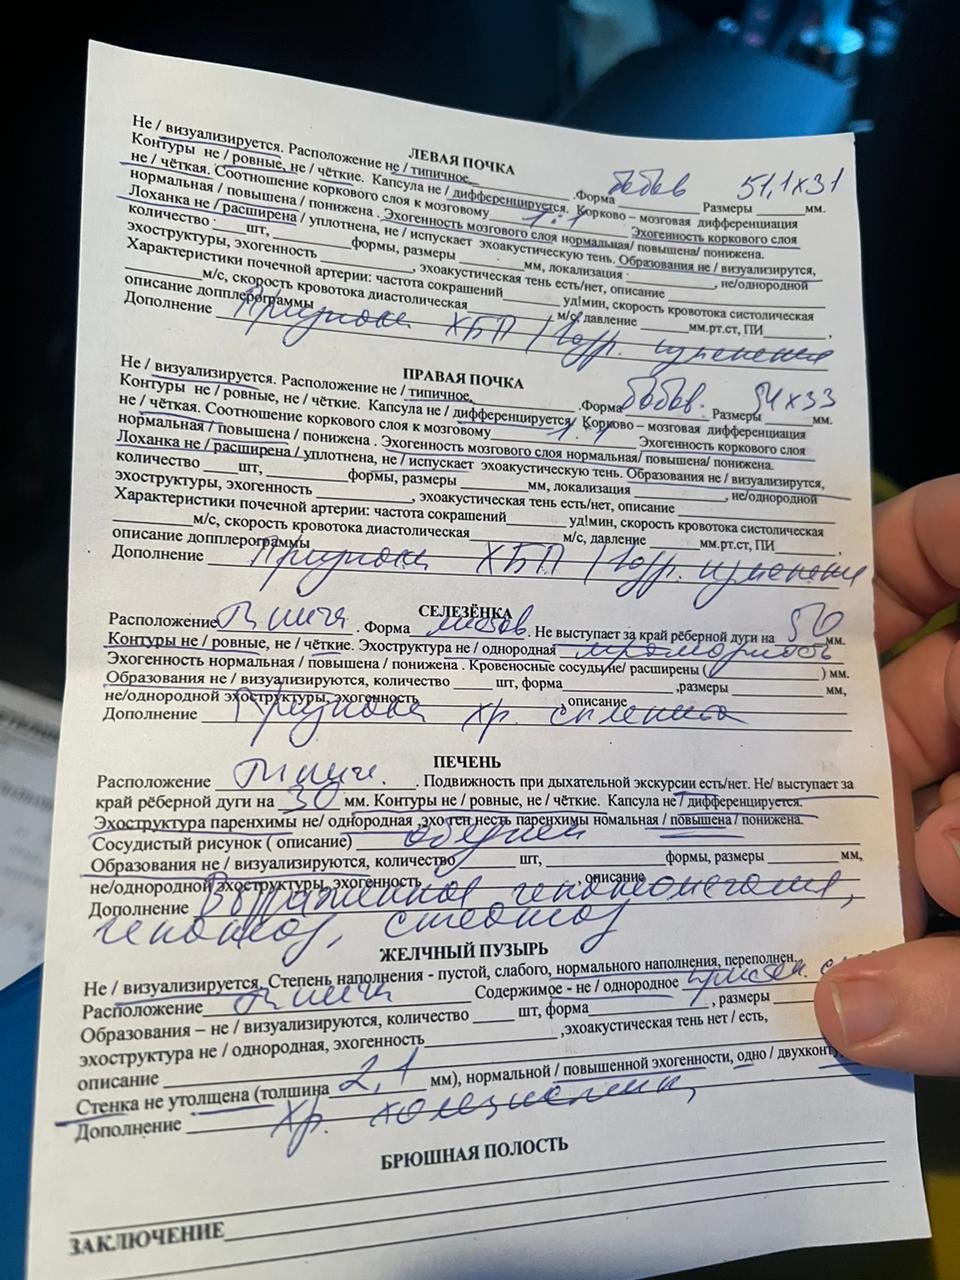 ЛЕВАЯ ПОЧКА
Не / визуализируется. Расположение не / типичное, Форма бобов Размеры 51,1х31 мм.
Контуры не / ровные, не / чёткие. Капсула не / дифференцируется. Корково – мозговая дифференциация
не / чёткая. Соотношение коркового слоя к мозговому 1:1 Эхогенность коркового слоя
нормальная / повышена / понижена . Эхогенность мозгового слоя нормальная/ повышена/ понижена.
Лоханка не / расширена / уплотнена, не / испускает эхоакустическую тень. Образования не / визуализирутся,
количество шт, формы, размеры мм, локализация , не/однородной
эхоструктуры, эхогенность , эхоакустическая тень есть/нет, описание
Характеристики почечной артерии: частота сокращений уд!мин, скорость кровотока систолическая
м/с, скорость кровотока диастолическая м/с, давление мм.рт.ст, ПИ ,
описание допплерограммы
Дополнение Признаки ХБП / изменения
ПРАВАЯ ПОЧКА
Не / визуализируется. Расположение не / типичное, Форма бобов. Размеры 54х33 мм.
Контуры не / ровные, не / чёткие. Капсула не / дифференцируется. Корково – мозговая дифференциация
не / чёткая. Соотношение коркового слоя к мозговому 1:1 Эхогенность коркового слоя
нормальная / повышена / понижена . Эхогенность мозгового слоя нормальная/ повышена/ понижена.
Лоханка не / расширена / уплотнена, не / испускает эхоакустическую тень. Образования не / визуализирутся,
количество шт, формы, размеры мм, локализация , не/однородной
эхоструктуры, эхогенность , эхоакустическая тень есть/нет, описание
Характеристики почечной артерии: частота сокращений уд!мин, скорость кровотока систолическая
м/с, скорость кровотока диастолическая м/с, давление мм.рт.ст, ПИ ,
описание допплерограммы
Дополнение Признаки ХБП / изменения
СЕЛЕЗЁНКА
Расположение типич . Форма . Не выступает за край рёберной дуги на 50 мм.
Контуры не / ровные, не / чёткие. Эхоструктура не / однородная
Эхогенность нормальная / повышена / понижена . Кровеносные сосуды/не/ расширены ( ) мм.
Образования не / визуализируются, количество шт, форма ,размеры мм,
не/однородной эхоструктуры, эхогенность , описание
Дополнение Признаки хр. спленита
ПЕЧЕНЬ
Расположение типич. . Подвижность при дыхательной экскурсии есть/нет. Не/ выступает за
край рёберной дуги на 30 мм. Контуры не / ровные, не / чёткие. Капсула не / дифференцируется.
Эхоструктура паренхимы не/ однородная ,эхо ген несть паренхимы номальная / повышена / понижена.
Сосудистый рисунок ( описание) обеднен
Образования не / визуализируются, количество шт, формы, размеры мм,
не/однородной эхоструктуры, эхогенность , описание
Дополнение Выраженная гепатомегалия,
гепатоз, стеатоз
ЖЕЛЧНЫЙ ПУЗЫРЬ
Не / визуализируется, Степень наполнения - пустой, слабого, нормального наполнения, переполнен.
Расположение типич Содержимое - не / однородное
Образования – не / визуализируются, количество шт, форма , размеры
эхоструктура не / однородная, эхогенность ,эхоакустическая тень нет / есть,
описание
Стенка не утолщена (толщина 2,1 мм), нормальной / повышенной эхогенности, одно /
Дополнение хр. холецистит
БРЮШНАЯ ПОЛОСТЬ
ЗАКЛЮЧЕНИЕ